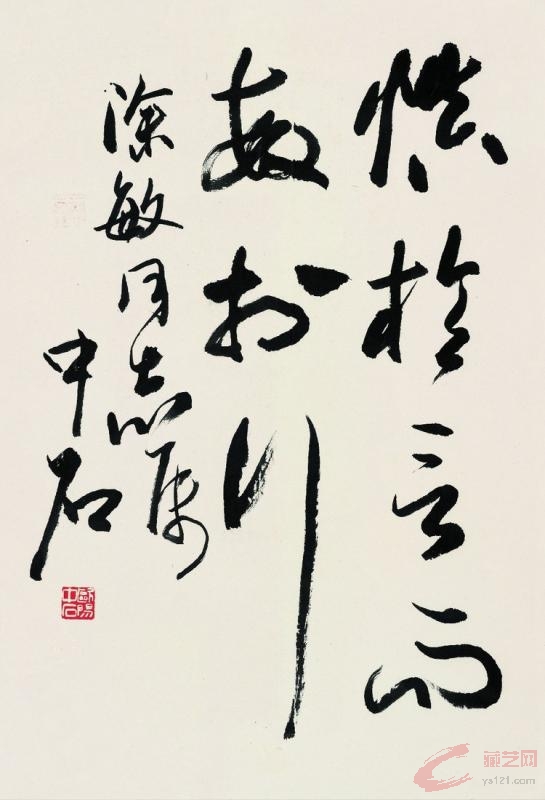 慎於言而
敏於行
涂敏同志属
中石
歐陽中石
藏艺网
ys121.com